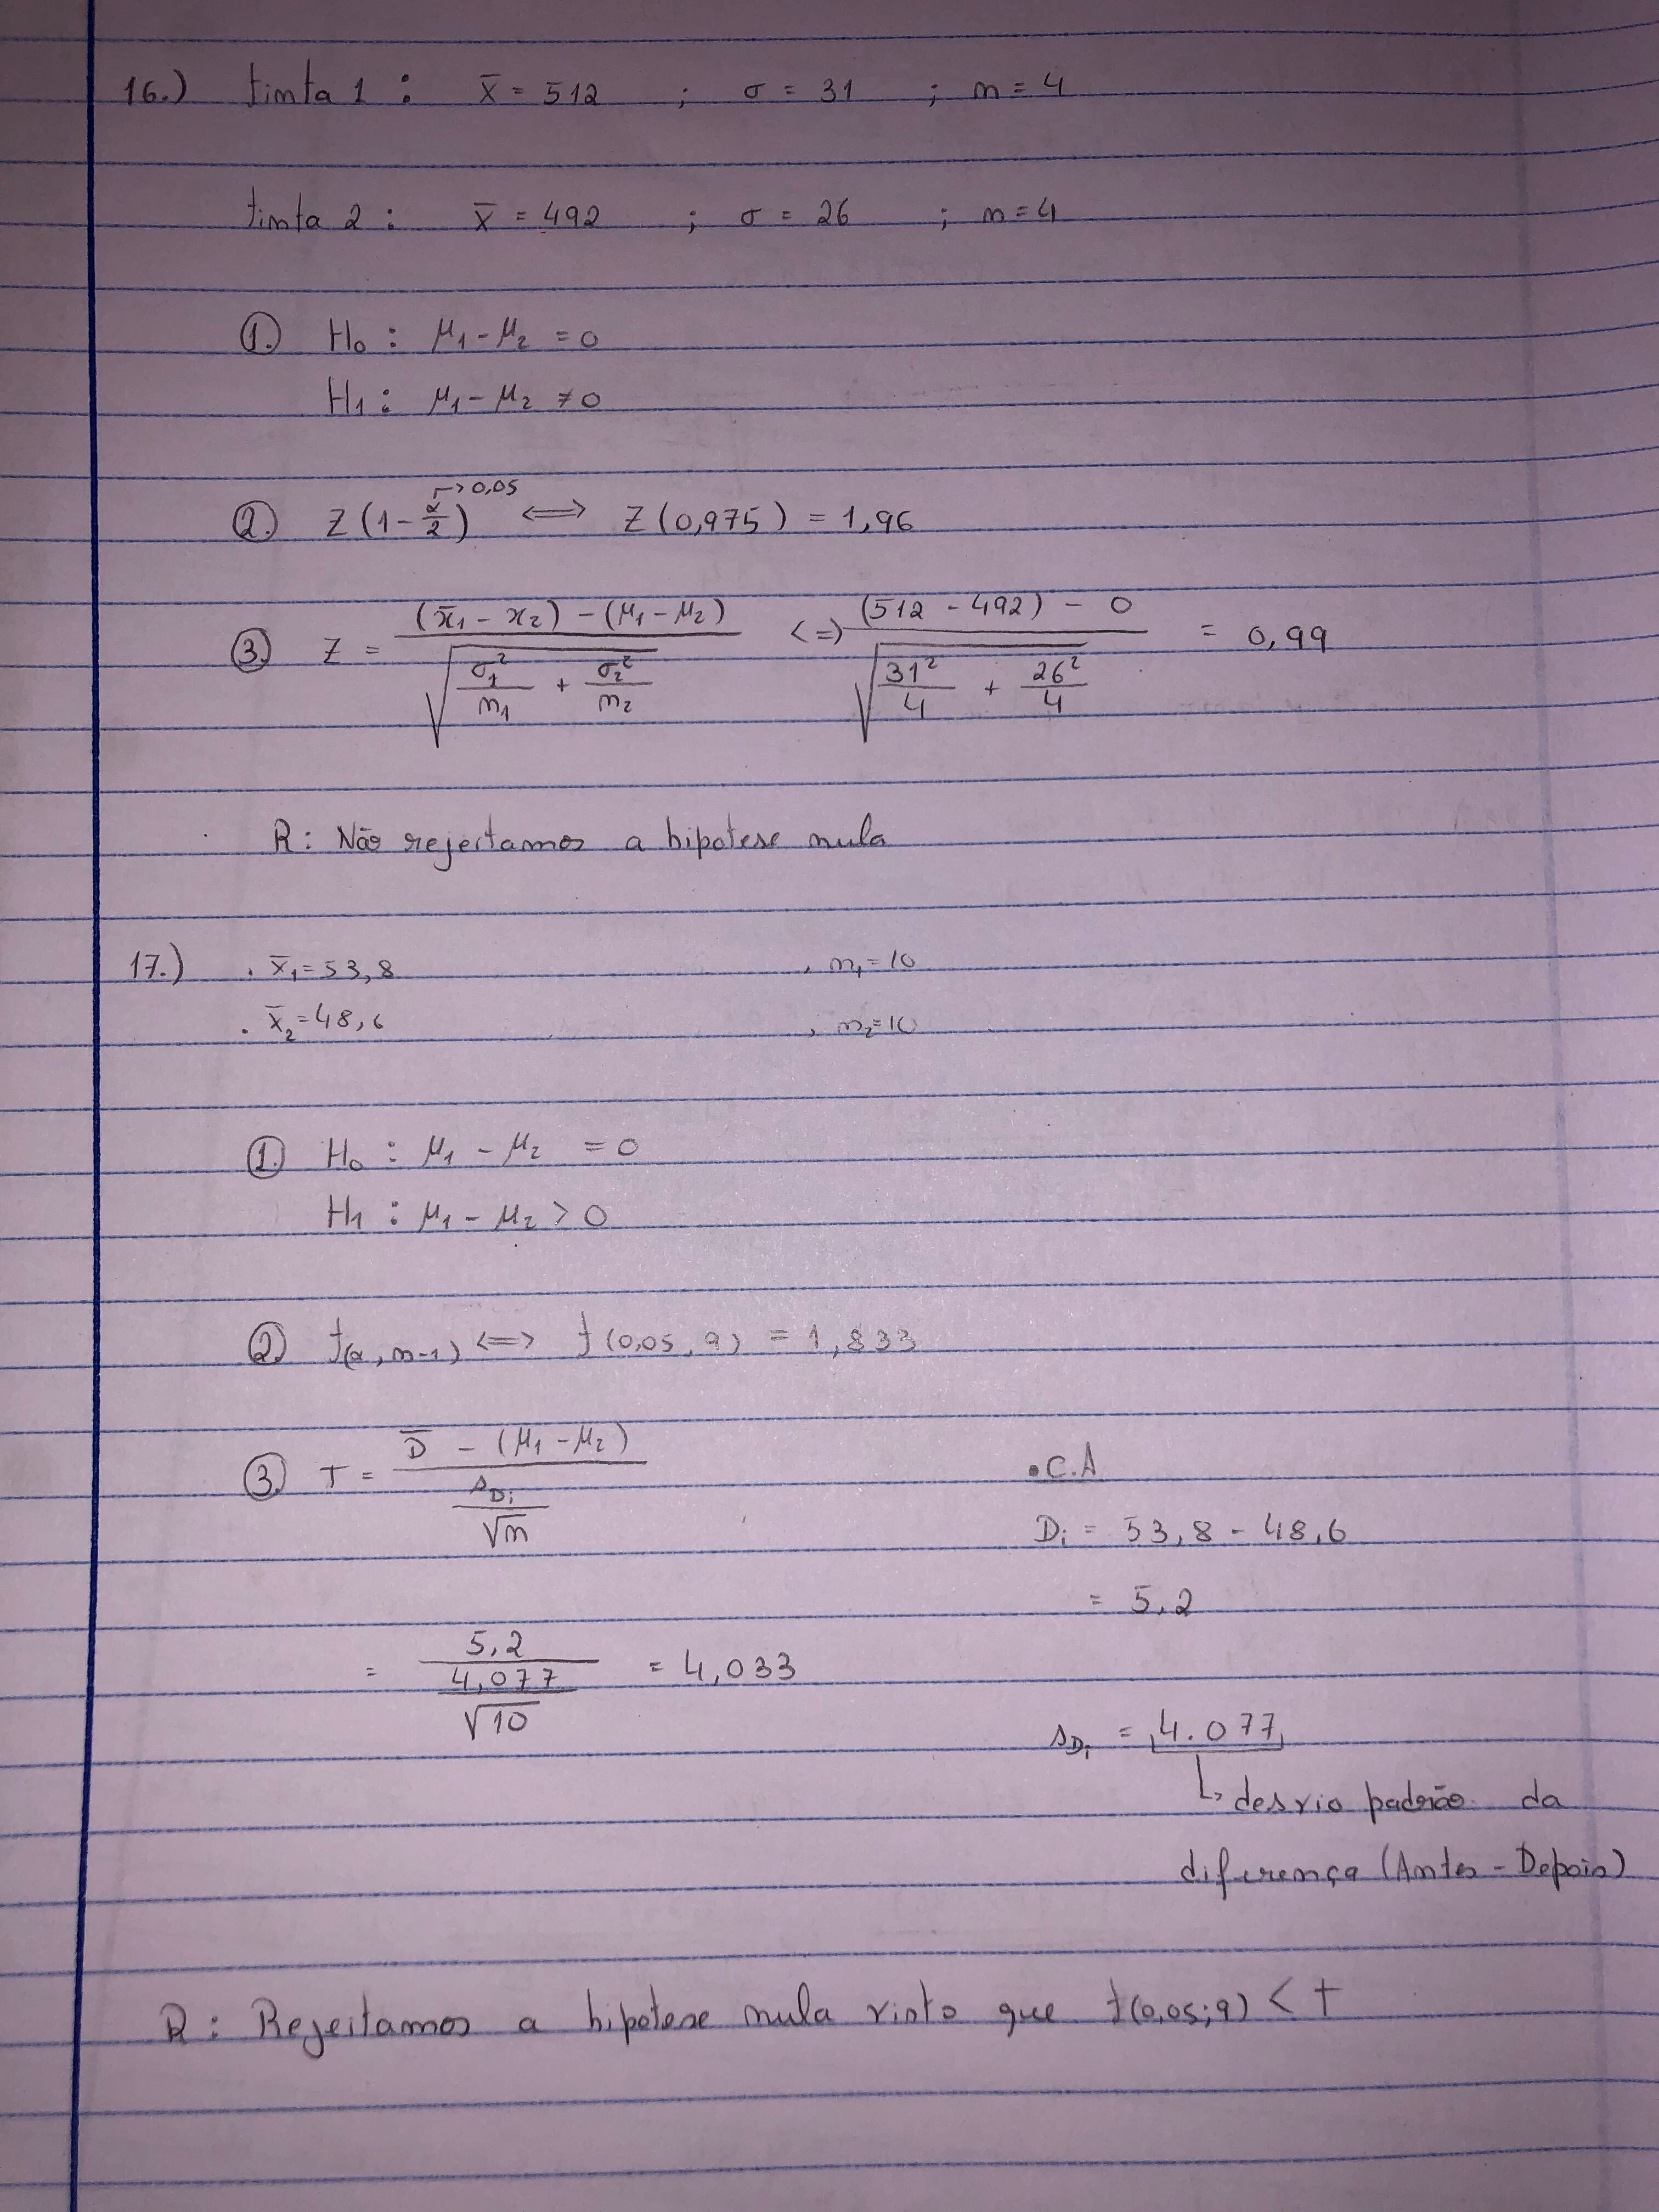 16.) tinta 1 : x̄ = 512 ; σ = 31 ; n = 4
tinta 2 : x̄ = 492 ; σ = 26 ; n = 4
① H₀ : μ₁ - μ₂ = 0
H₁ : μ₁ - μ₂ ≠ 0
② Z (1 - α/2) ⟺ Z (0,975) = 1,96
↱ 0,05
③ Z = ((x̄₁ - x₂) - (μ₁ - μ₂)) / √(σ₁²/n₁ + σ₂²/n₂) <=> ((512 - 492) - 0) / √(31²/4 + 26²/4) = 0,99
R : Não rejeitamos a hipotese nula
17.) . x̄₁ = 53,8 , n₁ = 10
. x̄₂ = 48,6 , n₂ = 10
① H₀ : μ₁ - μ₂ = 0
H₁ : μ₁ - μ₂ > 0
② t(α, n-1) <=> t (0,05, 9) = 1,833
③ T = (D̄ - (μ₁ - μ₂)) / (s_Di / √n)
= 5,2 / (4,077 / √10) = 4,033
• C.A
Di = 53,8 - 48,6
= 5,2
s_Di = 4.077
↳ desvio padrão da
diferença (Antes - Depois)
R : Rejeitamos a hipotese nula visto que t(0,05;9) < t